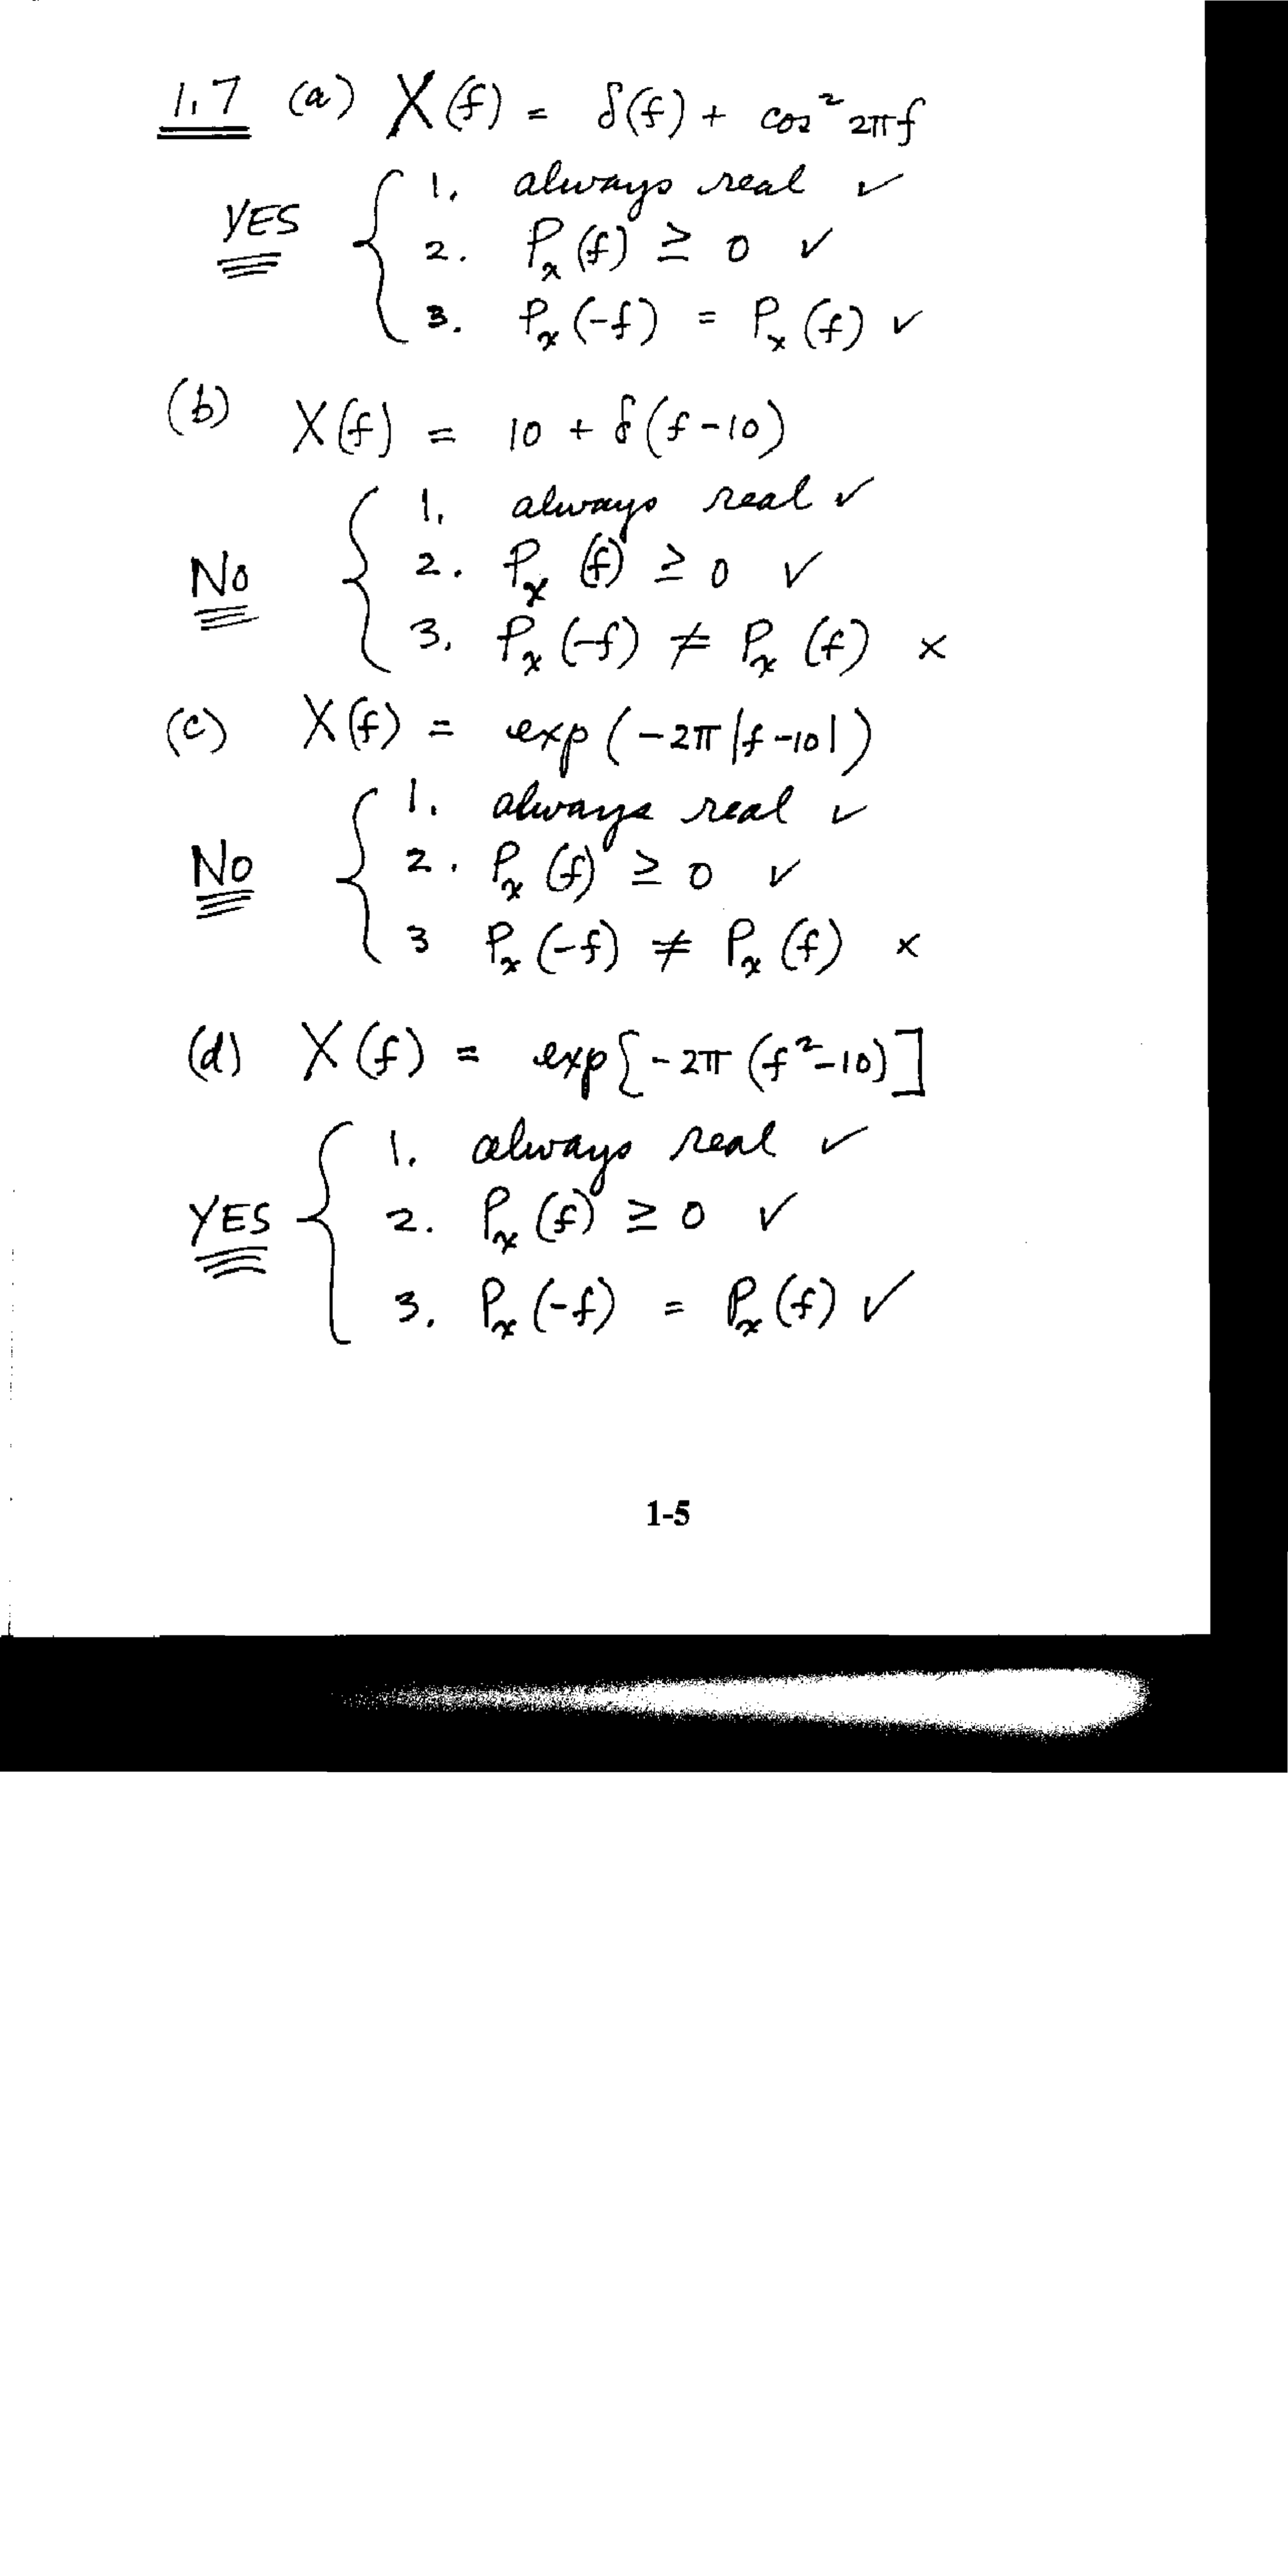 1.7 (a) X(f) = δ(f) + cos² 2πf
1. always real ✓
YES { 2. Pₓ(f) ≥ 0 ✓
3. Pₓ(-f) = Pₓ(f) ✓
(b) X(f) = 10 + δ(f-10)
1. always real ✓
No { 2. Pₓ(f) ≥ 0 ✓
3. Pₓ(-f) ≠ Pₓ(f) ×
(c) X(f) = exp(-2π|f-10|)
1. always real ✓
No { 2. Pₓ(f) ≥ 0 ✓
3 Pₓ(-f) ≠ Pₓ(f) ×
(d) X(f) = exp[-2π(f²-10)]
1. always real ✓
YES { 2. Pₓ(f) ≥ 0 ✓
3. Pₓ(-f) = Pₓ(f) ✓
1-5